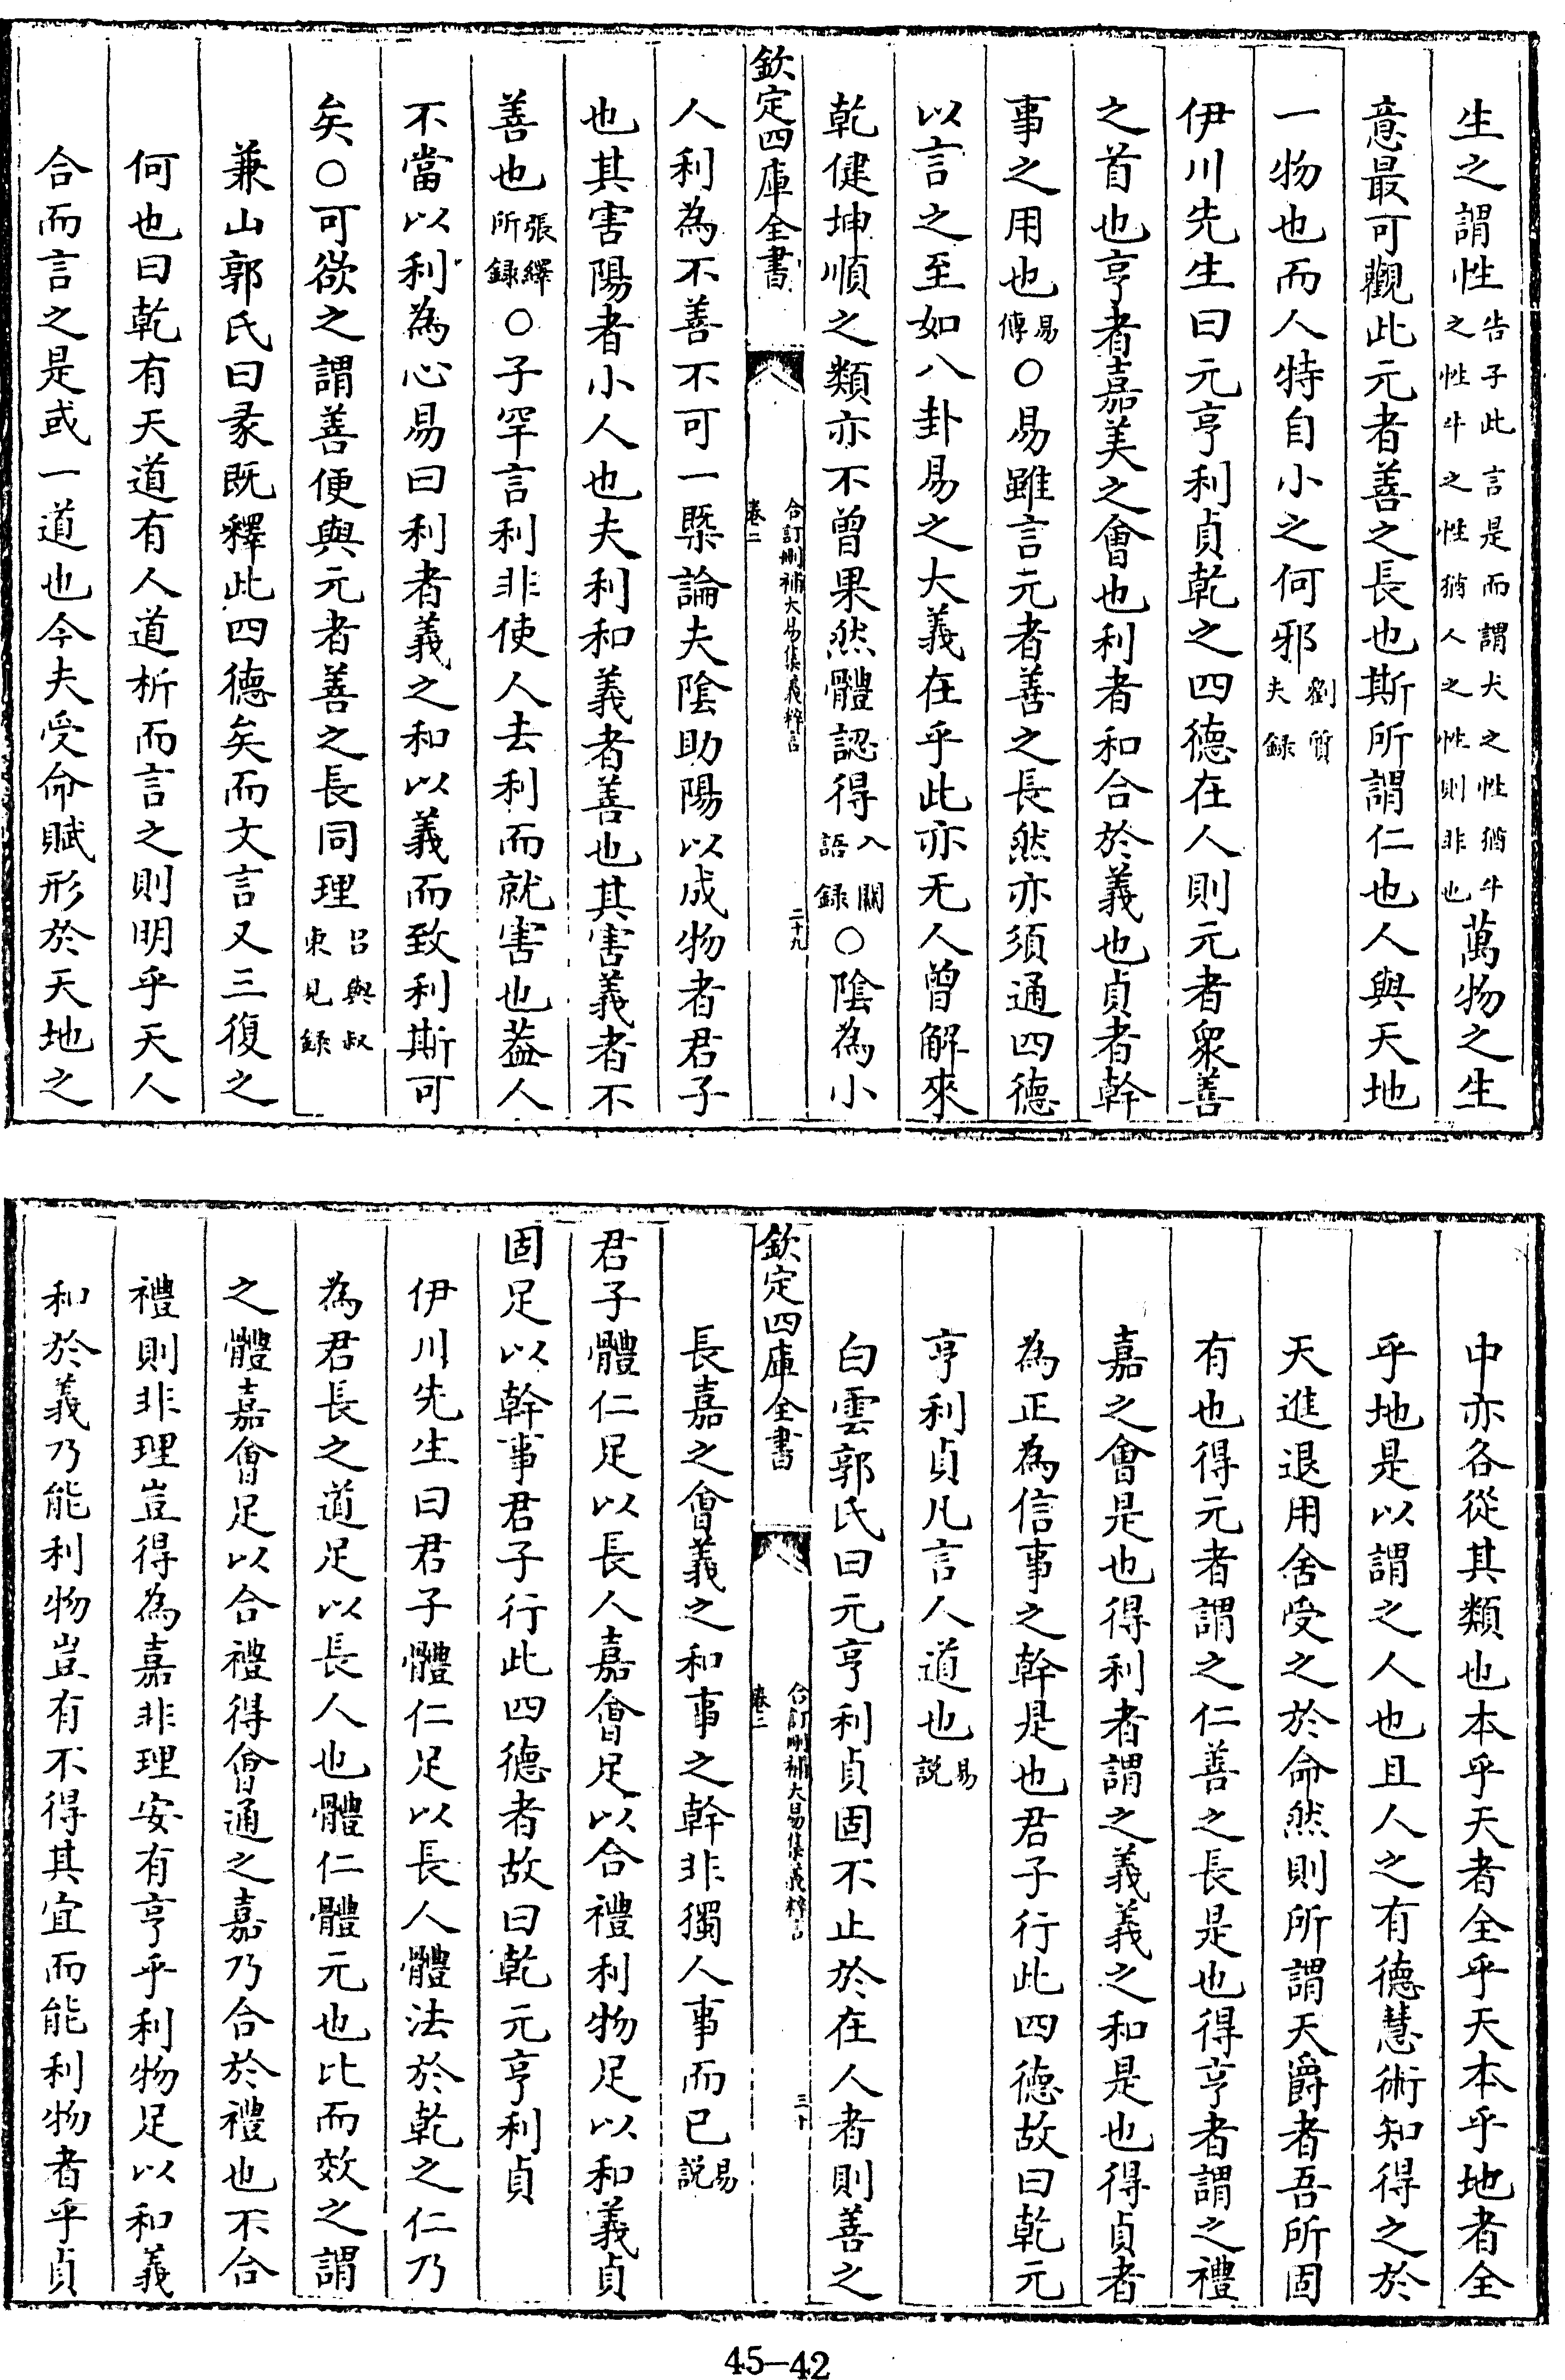 生之謂性告子此言是而謂犬之性猶牛之性牛之性猶人之性則非也萬物之生
意最可觀此元者善之長也斯所謂仁也人與天地
一物也而人特自小之何邪劉質夫録
伊川先生曰元亨利貞乾之四德在人則元者衆善
之首也亨者嘉美之會也利者和合於義也貞者幹
事之用也易傳○易雖言元者善之長然亦須通四德
以言之至如八卦易之大義在乎此亦无人曾解來
乾健坤順之類亦不曾果然體認得入關語録○陰為小
欽定四庫全書
合訂刪補大易集義粹言
卷二
二十九
人利為不善不可一槩論夫陰助陽以成物者君子
也其害陽者小人也夫利和義者善也其害義者不
善也張繹所録○子罕言利非使人去利而就害也葢人
不當以利為心易曰利者義之和以義而致利斯可
矣○可欲之謂善便與元者善之長同理吕與叔東見録
兼山郭氏曰彖既釋此四德矣而文言又三復之
何也曰乾有天道有人道析而言之則明乎天人
合而言之是或一道也今夫受命賦形於天地之
中亦各從其類也本乎天者全乎天本乎地者全
乎地是以謂之人也且人之有德慧術知得之於
天進退用舍受之於命然則所謂天爵者吾所固
有也得元者謂之仁善之長是也得亨者謂之禮
嘉之會是也得利者謂之義義之和是也得貞者
為正為信事之幹是也君子行此四德故曰乾元
亨利貞凡言人道也易説
白雲郭氏曰元亨利貞固不止於在人者則善之
欽定四庫全書
合訂刪補大易集義粹言
卷二
三十
長嘉之會義之和事之幹非獨人事而已易説
君子體仁足以長人嘉會足以合禮利物足以和義貞
固足以幹事君子行此四德者故曰乾元亨利貞
伊川先生曰君子體仁足以長人體法於乾之仁乃
為君長之道足以長人也體仁體元也比而效之謂
之體嘉會足以合禮得會通之嘉乃合於禮也不合
禮則非理豈得為嘉非理安有亨乎利物足以和義
和於義乃能利物豈有不得其宜而能利物者乎貞
45-42